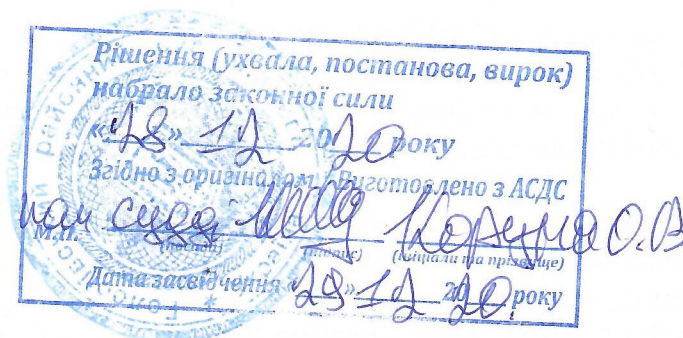 Рішення (ухвала, постанова, вирок)
набрало законної сили
«28» 12 2020 року
Згідно з оригіналом / Виготовлено з АСДС
суддя О.В
М.П. (посада) (підпис) (ініціали та прізвище)
Дата засвідчення «29» 12 2020 року